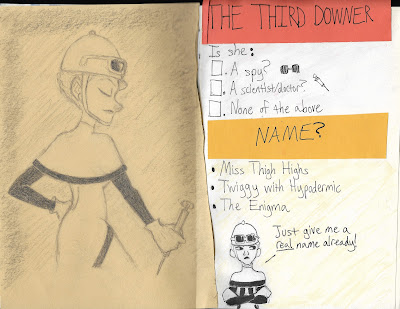 THE THIRD DOWNER
Is she:
A spy?
A scientist/doctor?
None of the above
NAME?
• Miss Thigh Highs
• Twiggy with Hypodermic
• The Enigma
Just give me a
real name already!